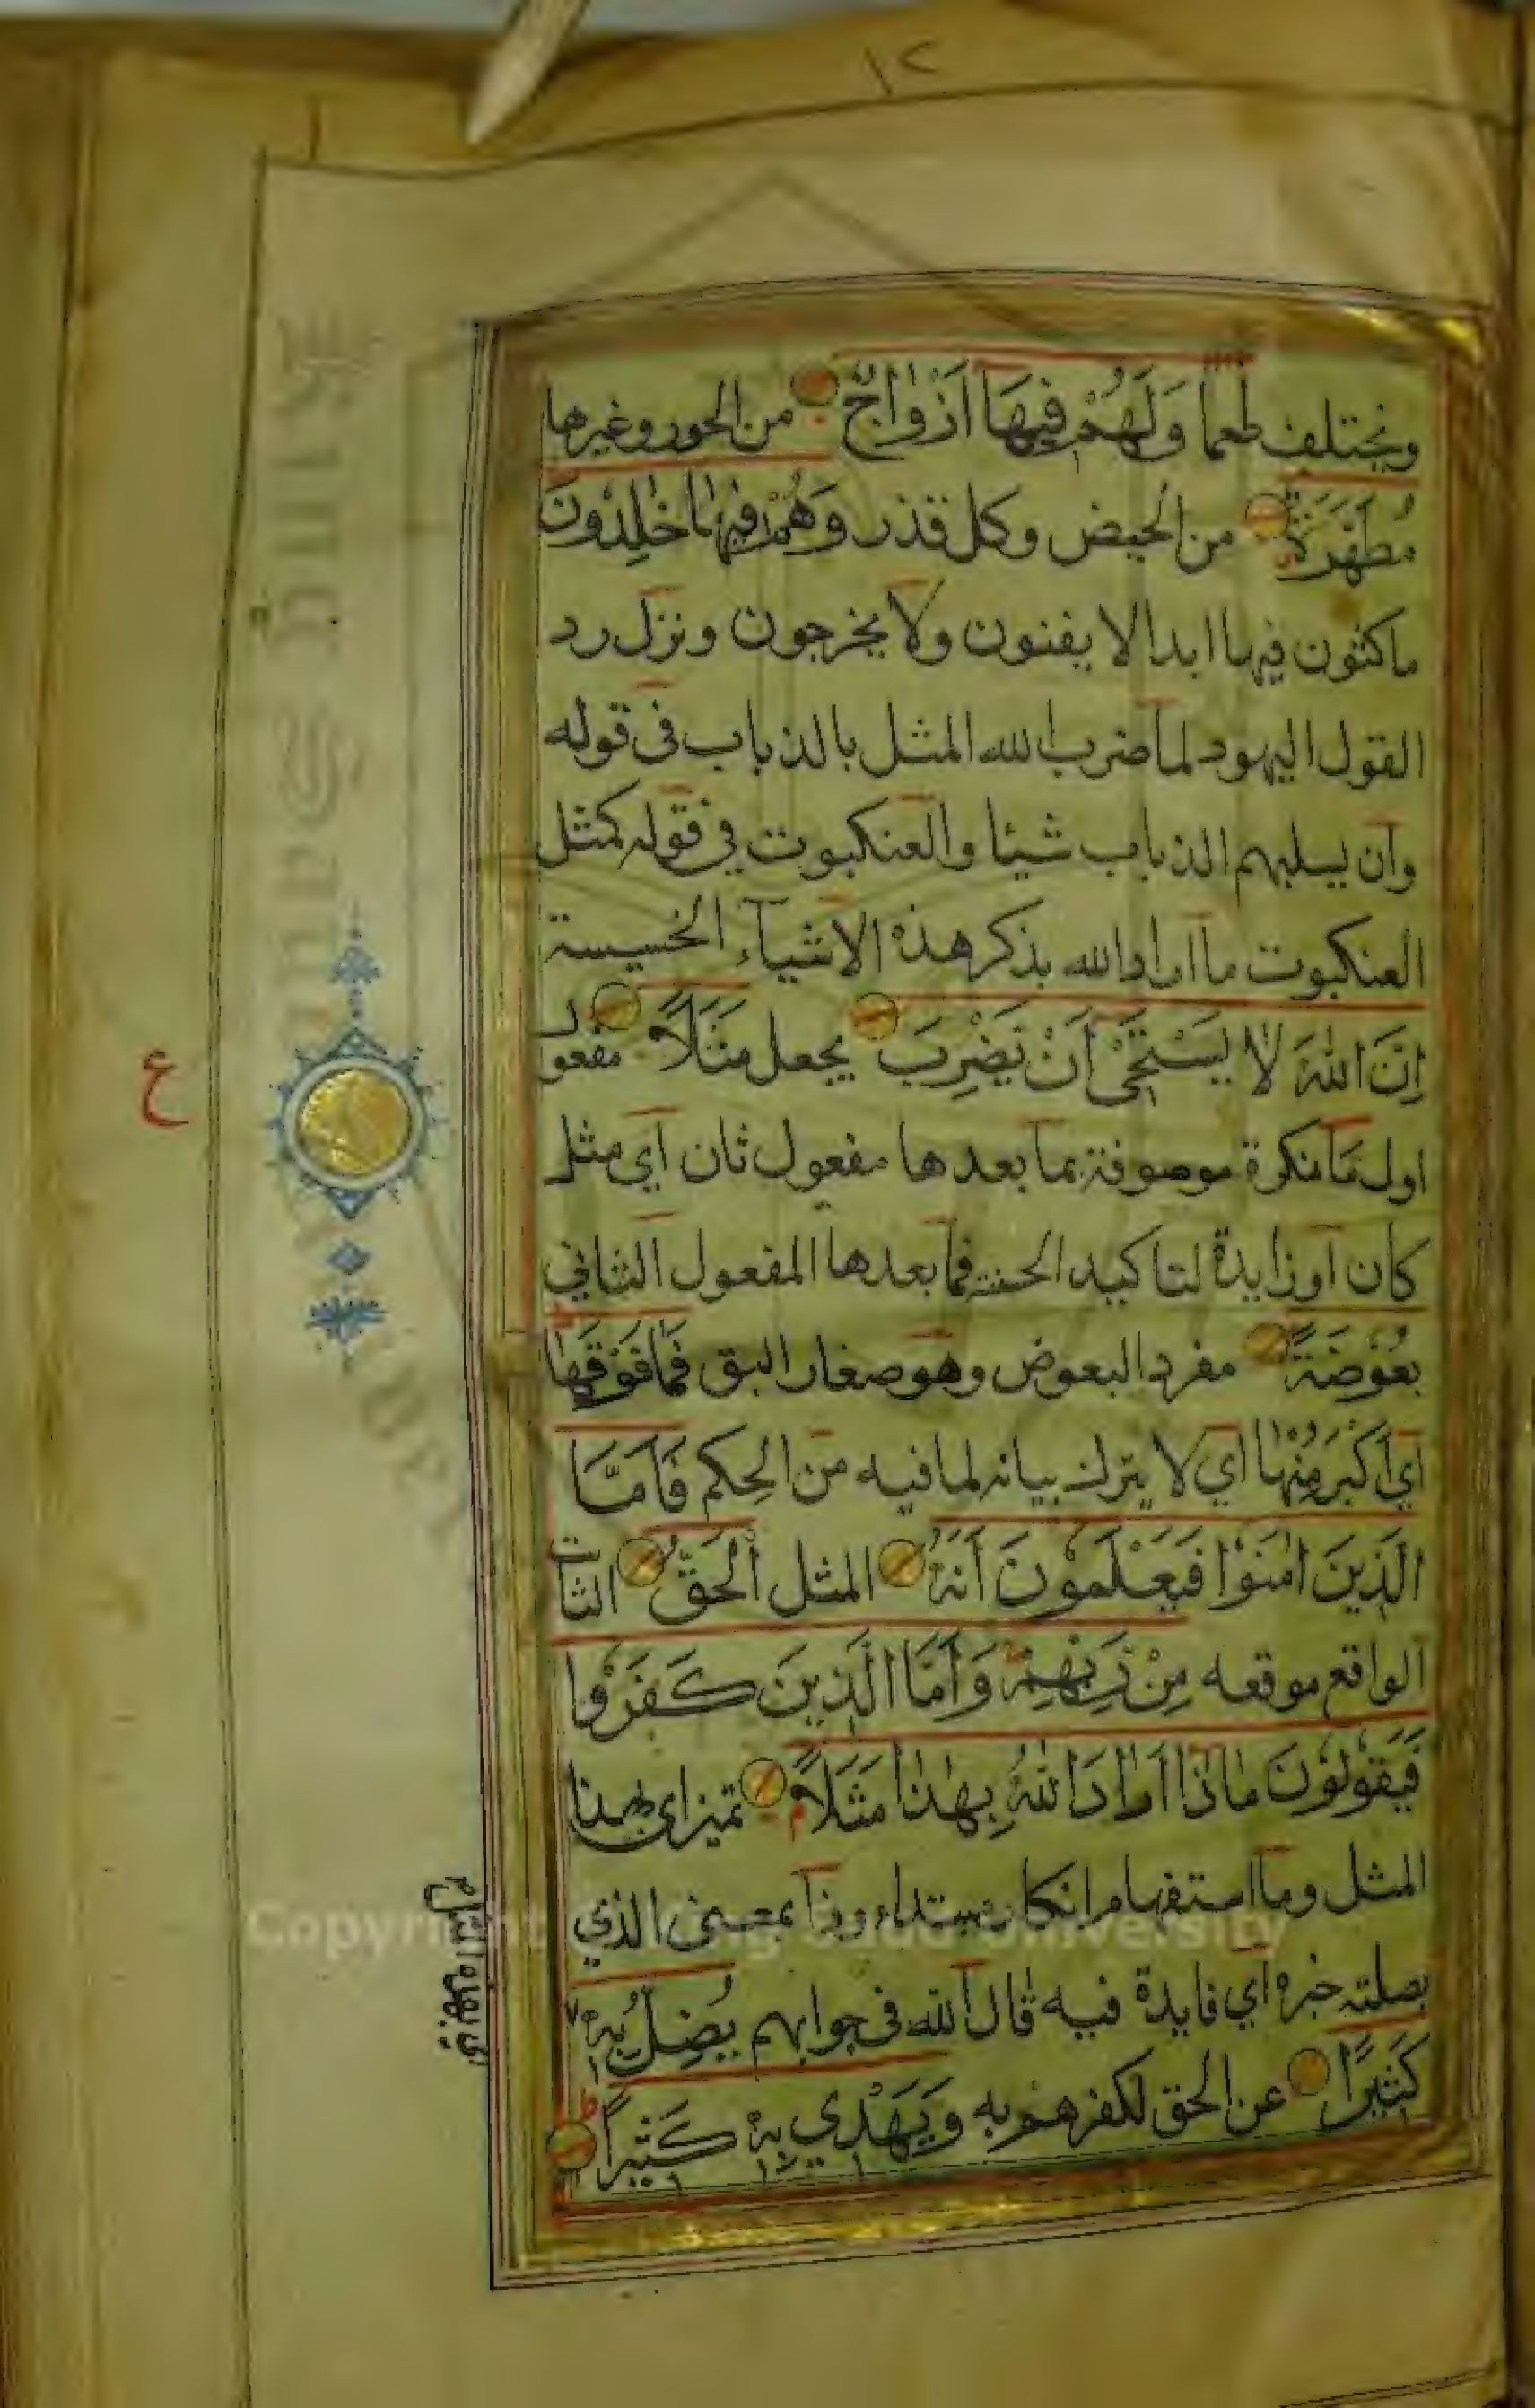 ١٢
ويختلف طعما وَلَهُمْ فِيهَا اَزْوَاجٌ من الحور وغيرها
مُطَهَّرَةٌ من الحيض وكل قذر وَهُمْ فِيهَا خٰلِدُونَ
ماكثون فيها ابدا لا يفنون ولا يخرجون ونزل رد
القول اليهود لما ضرب الله المثل بالذباب فى قوله
وان يسلبهم الذباب شيئا والعنكبوت في قوله كمثل
العنكبوت ما اراد الله بذكر هذه الاشيآء الخسيسة
اِنَّ اللّٰهَ لَا يَسْتَحْيٖ اَنْ يَضْرِبَ يجعل مَثَلًا مفعول
اول مَا نكرة موصوفة بما بعدها مفعول ثان اي مثل
كان او زايدة لتاكيد الخسة فما بعدها المفعول الثاني
بَعُوضَةً مفرد البعوض وهو صغار البق فَمَا فَوْقَهَا
اي اكبر منها اي لا يترك بيانه لما فيه من الحِكم فَاَمَّا
الَّذِينَ اٰمَنُوا فَيَعْلَمُونَ اَنَّهُ المثل اَلْحَقُّ الثابت
الواقع موقعه مِنْ رَبِّهِمْ وَاَمَّا الَّذِينَ كَفَرُوا
فَيَقُولُونَ مَاذَا اَرَادَ اللّٰهُ بِهٰذَا مَثَلًا تميز اى بهذا
المثل وما استفهام انكار مبتداء وذا بمعنى الذي
بصلته خبره اي فايدة فيه قال الله فى جوابهم يُضِلُّ بِهٖ
كَثِيرًا عن الحق لكفرهم به وَيَهْدِي بِهٖ كَثِيرًا
ع
Copyright © King Saud University